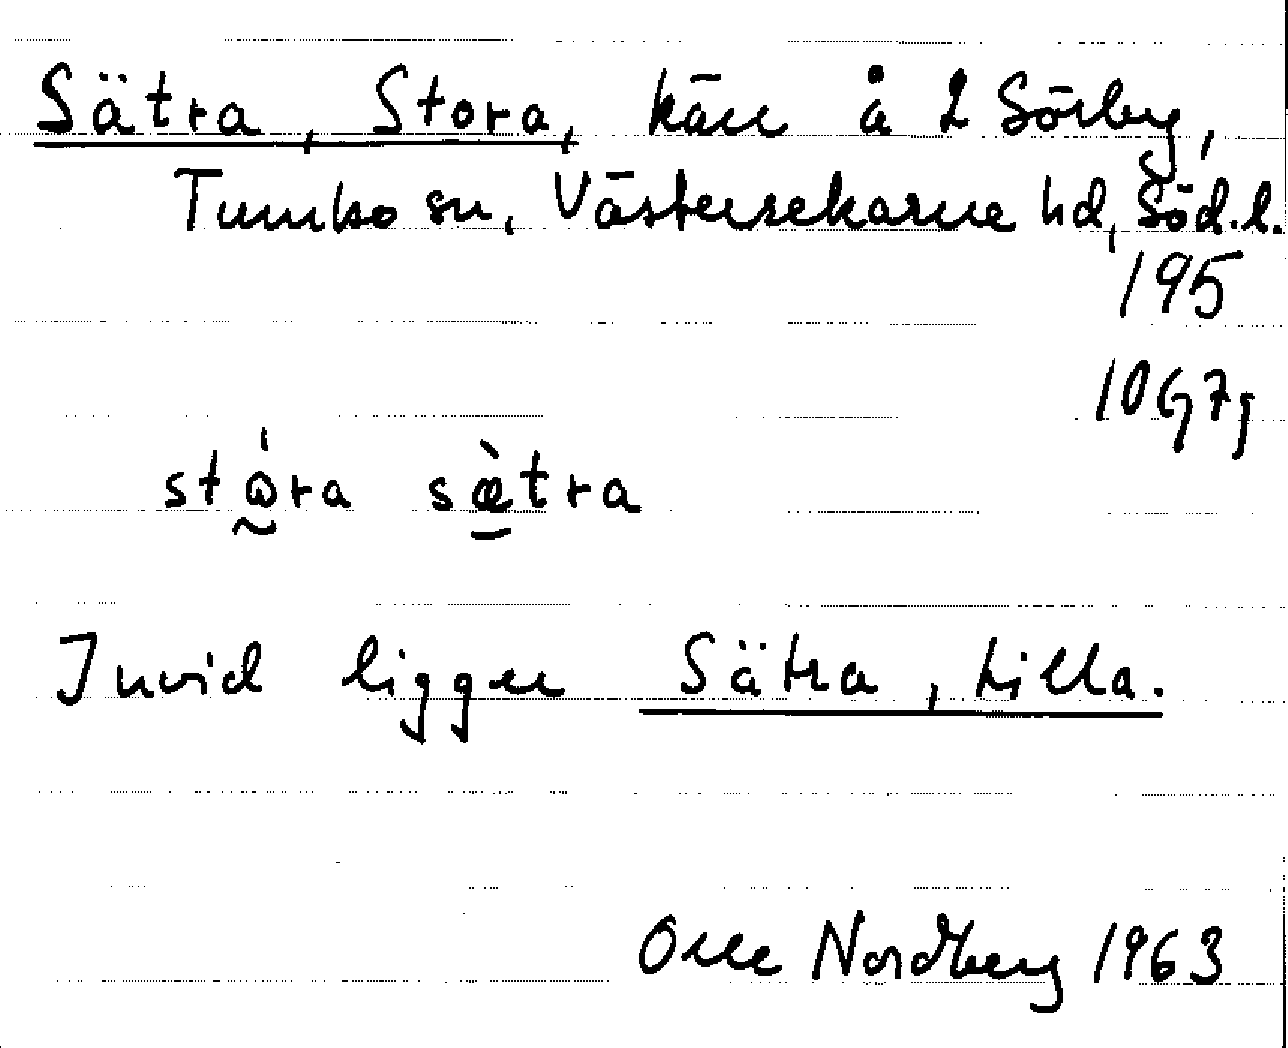 Sätra, Stora, kärr å 2 Sörby,
Tumbo sn, Västerrekarne hd, Söd.l.
195
10G7g
stòra sæ̀tra
Invid ligger Sätra, Lilla.
Olle Nordberg 1963